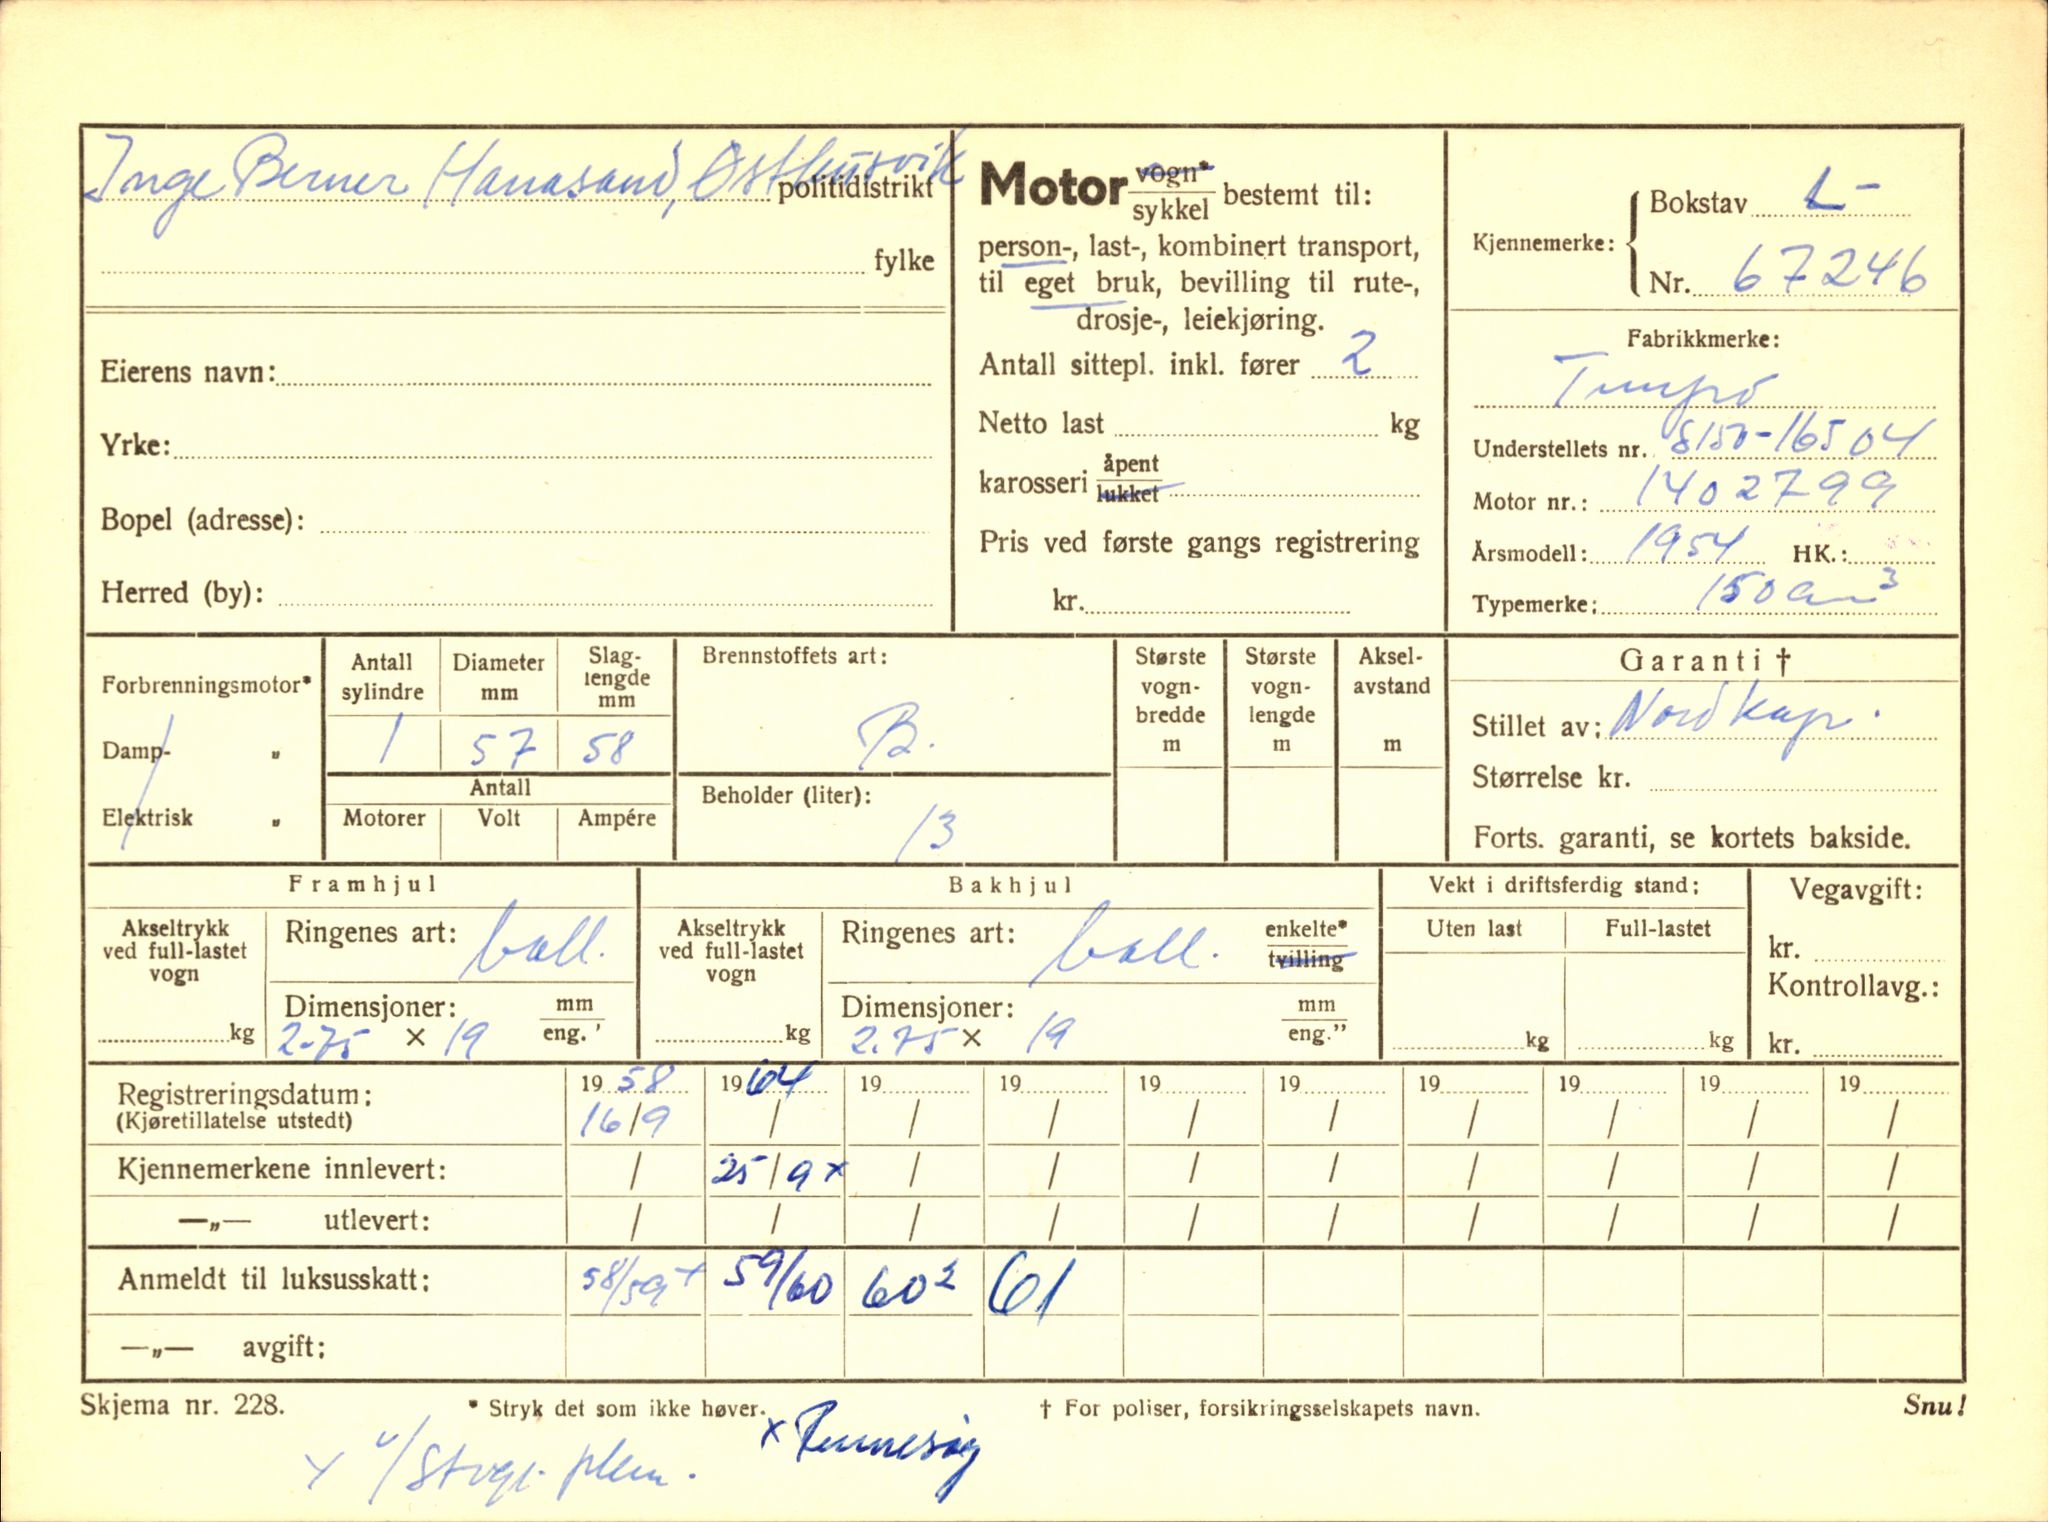 Inge Berner Hanasand, Østhusvik politidistrikt
fylke
Eierens navn:
Yrke:
Bopel (adresse):
Herred (by):
Motor vogn* sykkel bestemt til:
person-, last-, kombinert transport,
til eget bruk, bevilling til rute-,
drosje-, leiekjøring.
Antall sittepl. inkl. fører 2
Netto last kg
karosseri åpent lukket
Pris ved første gangs registrering
kr.
Kjennemerke: Bokstav L-
Nr. 67246
Fabrikkmerke:
Tempo
Understellets nr. S150-16504
Motor nr.: 1402799
Årsmodell: 1954 HK.:
Typemerke: 150 cm3
Forbrenningsmotor*
Damp- „
Elektrisk „
Antall sylindre 1
Diameter mm 57
Slag-lengde mm 58
Antall
Motorer Volt Ampére
Brennstoffets art:
B.
Beholder (liter):
13
Største vogn-bredde m
Største vogn-lengde m
Aksel-avstand m
Garanti †
Stillet av: Nordkap.
Størrelse kr.
Forts. garanti, se kortets bakside.
Framhjul
Akseltrykk ved full-lastet vogn
kg
Ringenes art: ball.
Dimensjoner: mm eng.'
2.75 × 19
Bakhjul
Akseltrykk ved full-lastet vogn
kg
Ringenes art: ball. enkelte* tvilling
Dimensjoner: mm eng."
2.75 × 19
Vekt i driftsferdig stand:
Uten last Full-lastet
kg kg
Vegavgift:
kr.
Kontrollavg.:
kr.
Registreringsdatum: 19 58 19 64 19 19 19 19 19 19 19 19
(Kjøretillatelse utstedt) 16/9 / / / / / / / / /
Kjennemerkene innlevert: / 25/9 x / / / / / / / /
—„— utlevert: / / / / / / / / / /
Anmeldt til luksusskatt: 58/59 + 59/60 60² 61
—„— avgift:
Skjema nr. 228. * Stryk det som ikke høver. † For poliser, forsikringsselskapets navn. Snu!
x Rennesøy